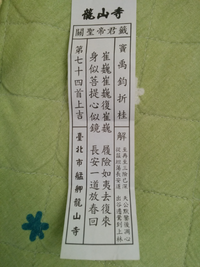 龍山寺
關聖帝君籤
竇禹鈞折桂
解
崔巍崔巍復崔巍 履險如夷去復來
身似菩提心似鏡 長安一道放春回
第七十四首上吉
臺北市艋舺龍山寺